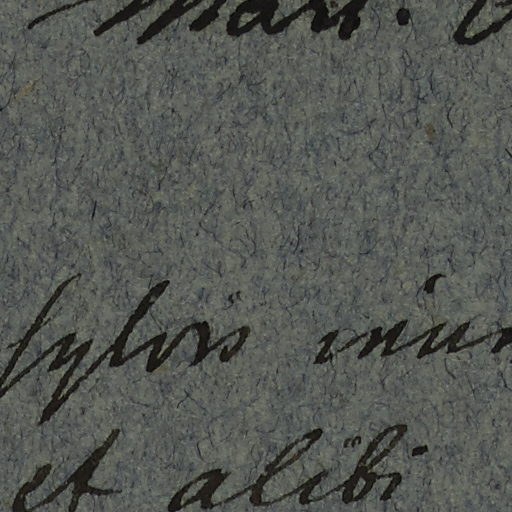 Mart.
sylvis inun
et alibi